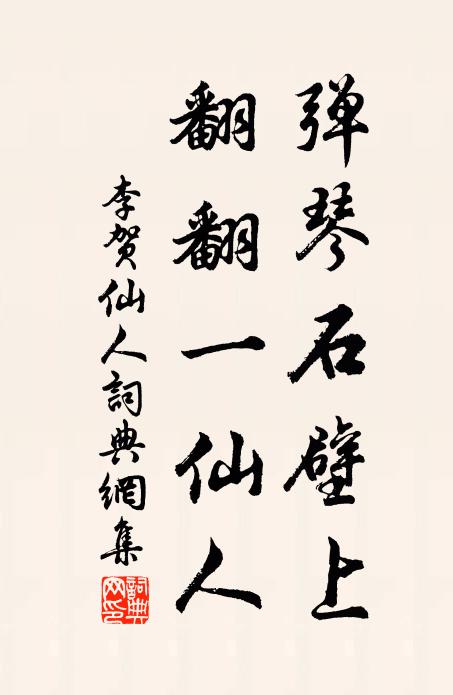 弹琴石壁上
翻翻一仙人
李贺仙人詞典網集
詞典網印